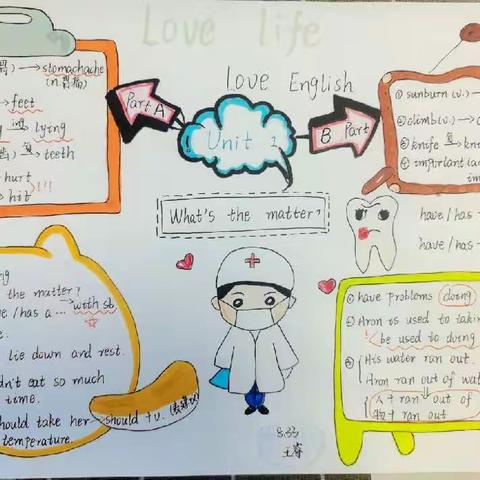 Love life
love English
Part A
Unit 1
B Part
What's the matter?
胃) → stomachache
(n.胃痛)
→ feet
→ lying
齿) 复 → teeth
→ hurt
→ hit !!!
① sunburn (v.) →
② climb (v.) →
③ knife 复
④ important (a
have/has →
have/has →
the matter?
/has a ... → with sb.
lie down and rest.
dn't eat so much
time.
should take her → should + v.
temperature.
① have problems doing
② Aron is used to takin
be used to doing
③ His water ran out.
Aron ran out of wat
人 + ran out of
物 + ran out
8.33